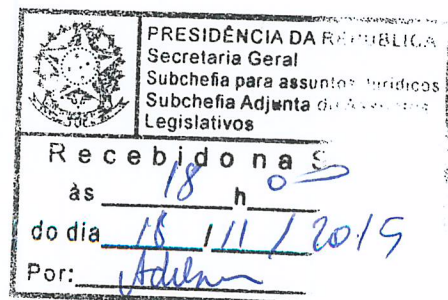 PRESIDÊNCIA DA REPÚBLICA
Secretaria Geral
Subchefia para assuntos Jurídicos
Subchefia Adjunta de
Legislativos
Recebido na S
às 18 h
do dia /11/2019
Por: